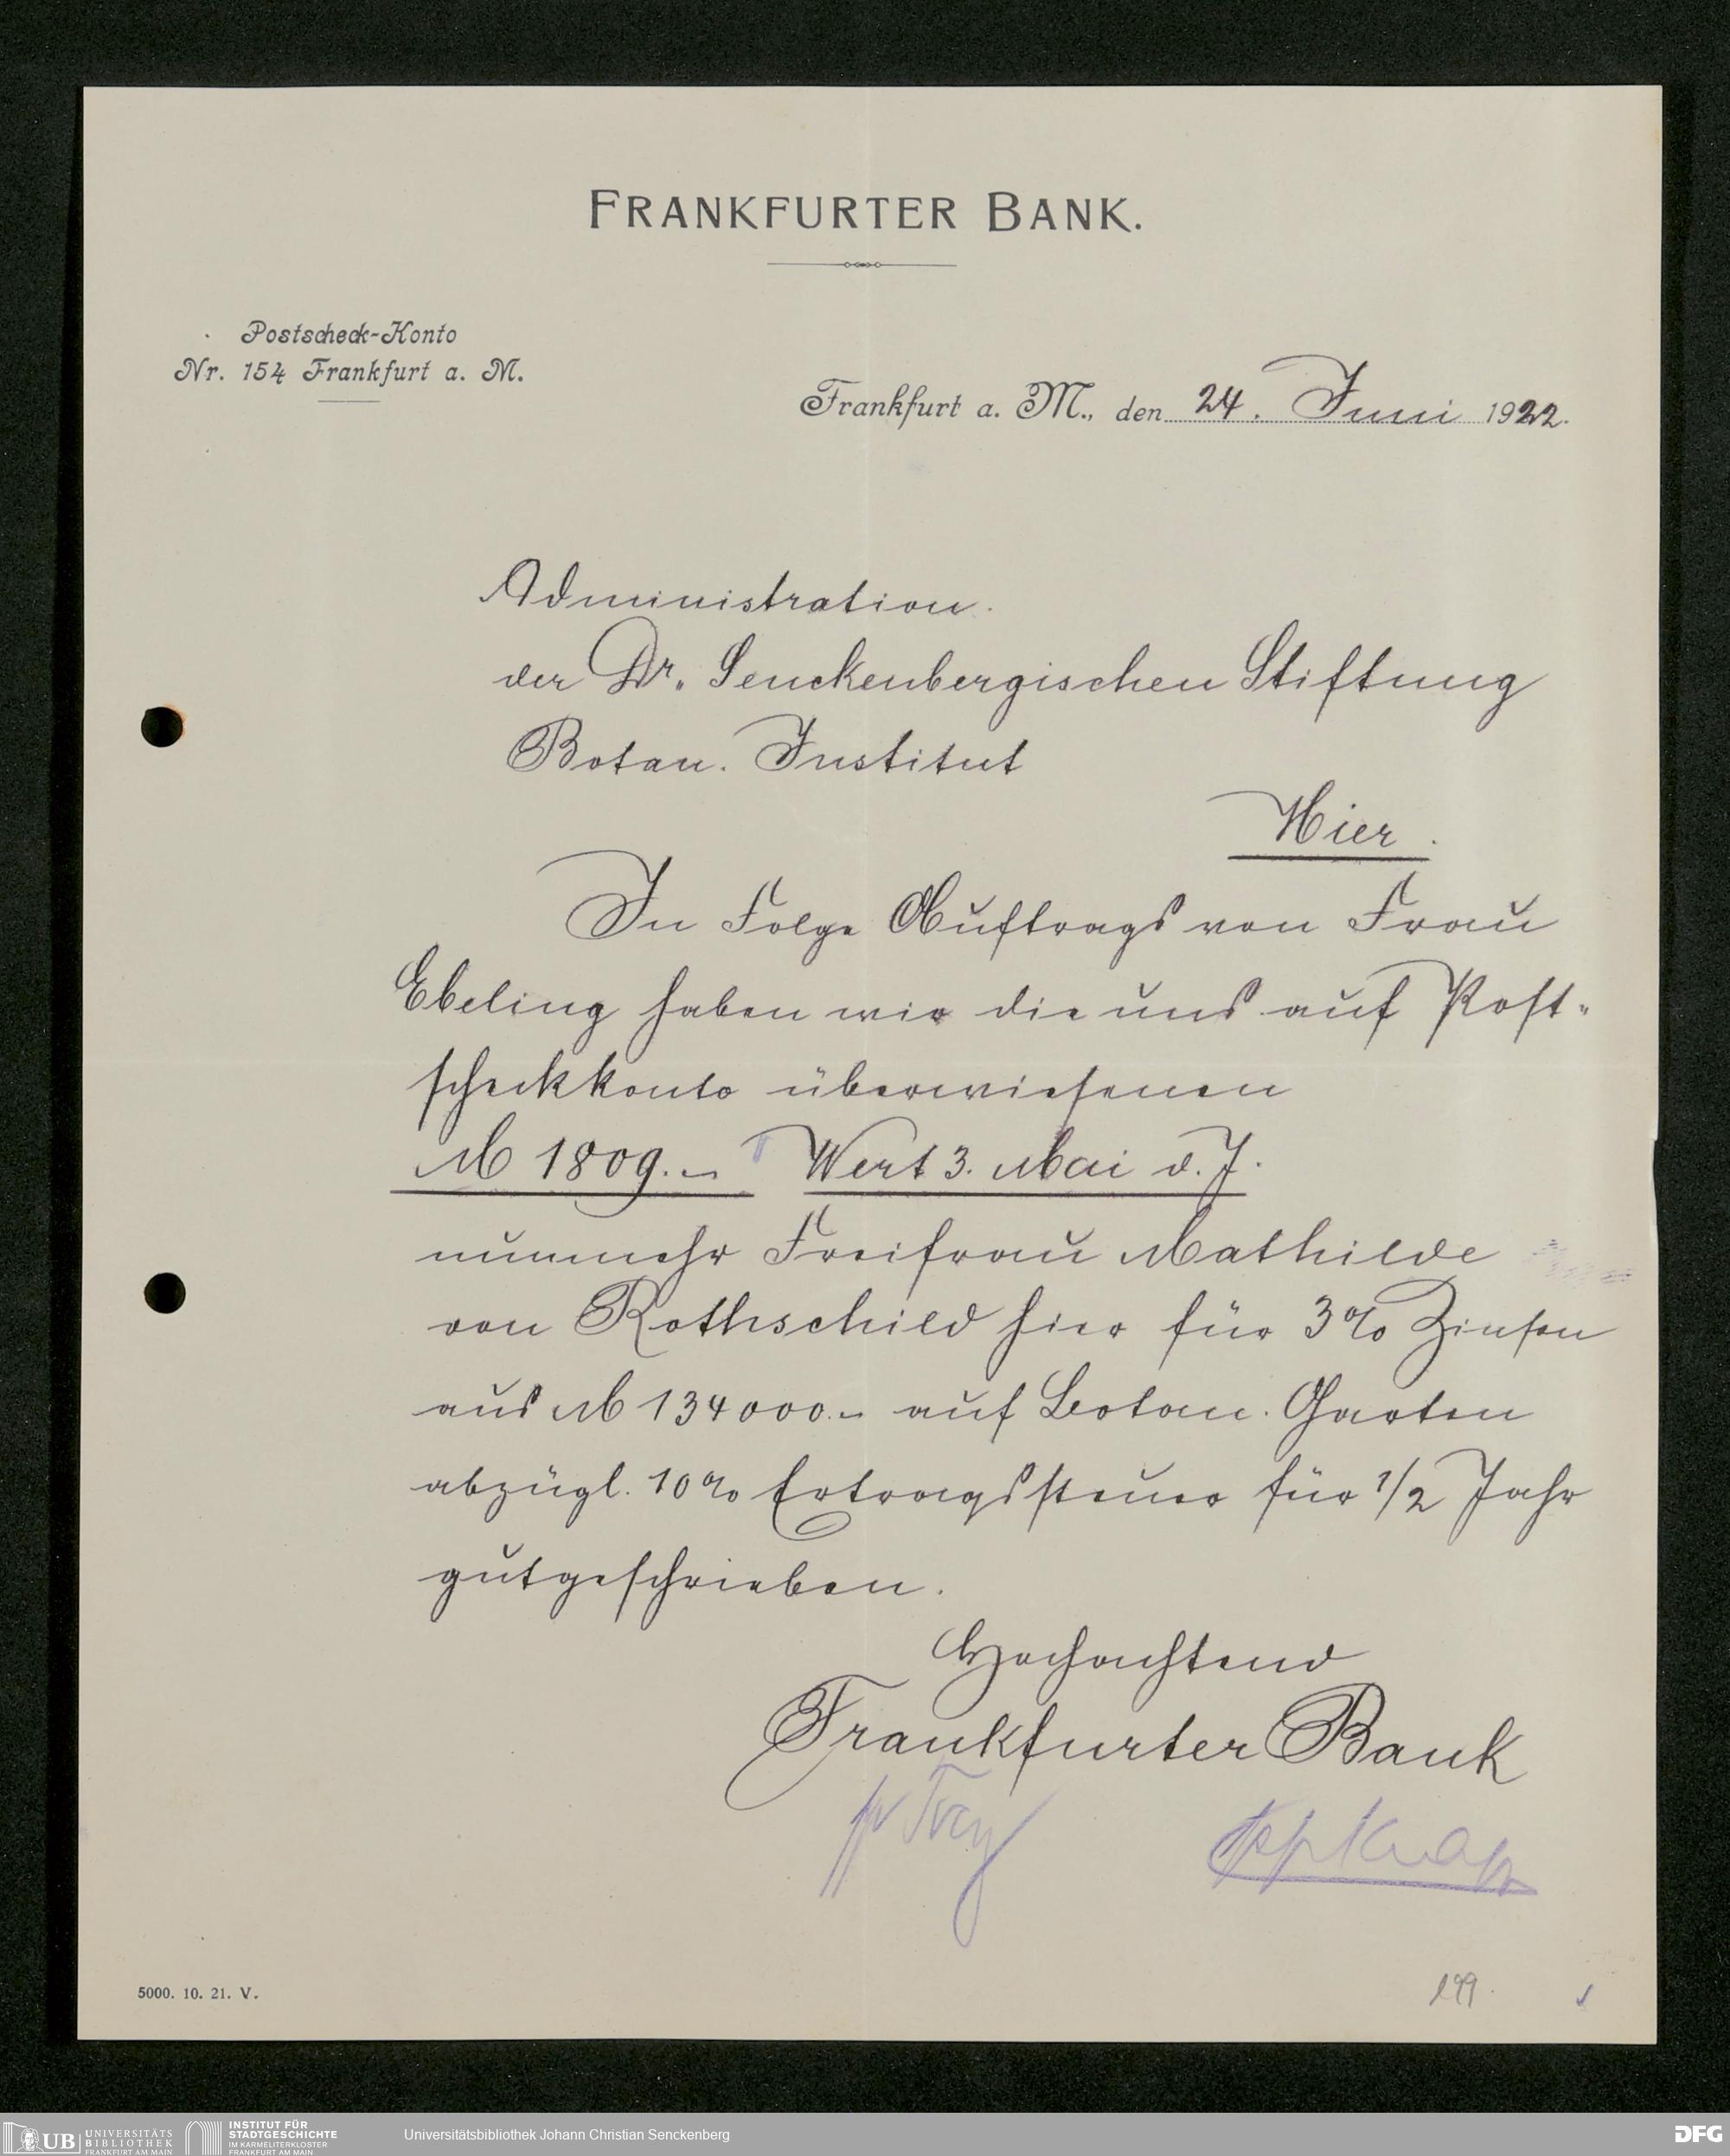 FRANKFURTER BANK.
Postscheck-Konto
Nr. 154 Frankfurt a. M.
Frankfurt a. M., den 24. Juni 1922.
Administration
der Dr. Senckenbergischen Stiftung
Botan. Institut
Hier.
In Folge Auftrags von Frau
Ebeling haben wir die uns auf Post-
scheckkonto überwiesenen
M 1809.- Wert 3. Mai d. J.
nunmehr Freifrau Mathilde
von Rothschild hier für 3% Zinsen
aus M 134000.- auf Botan. Garten
abzügl. 10% Ertragssteuer für 1/2 Jahr
gutgeschrieben.
Hochachtend
Frankfurter Bank
5000. 10. 21. V.
199.
UB UNIVERSITÄTS
BIBLIOTHEK
FRANKFURT AM MAIN
INSTITUT FÜR
STADTGESCHICHTE
IM KARMELITERKLOSTER
FRANKFURT AM MAIN
Universitätsbibliothek Johann Christian Senckenberg
DFG